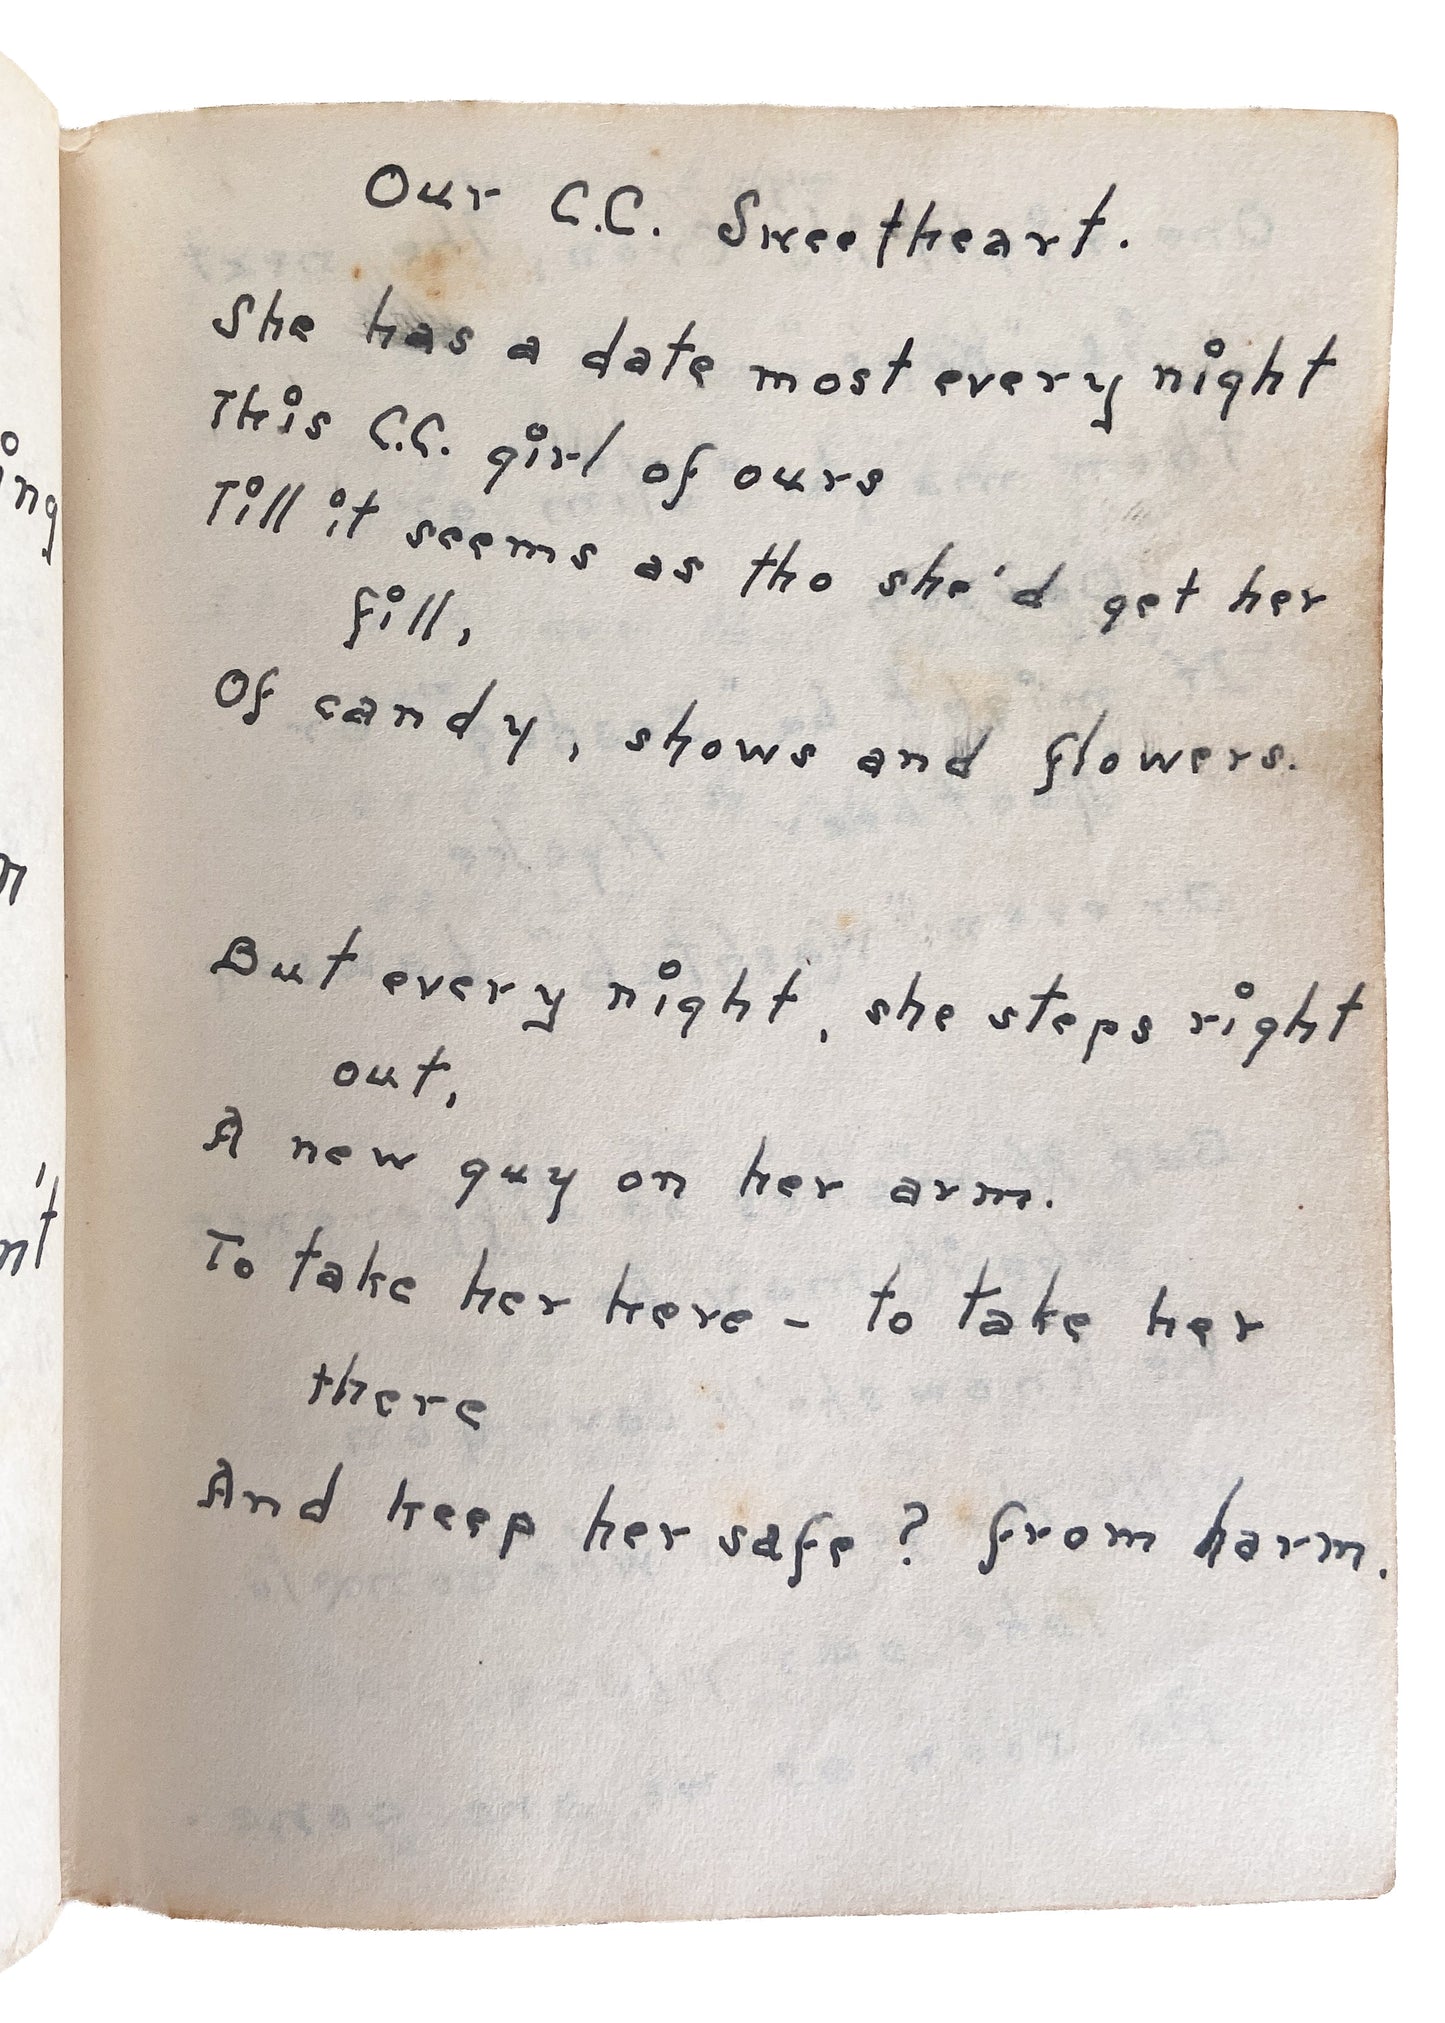 Our C.C. Sweetheart.
She has a date most every night
This C.C. girl of ours
Till it seems as tho she'd get her
fill,
Of candy, shows and flowers.
But every night, she steps right
out,
A new guy on her arm.
To take her here - to take her
there
And keep her safe ? from harm.